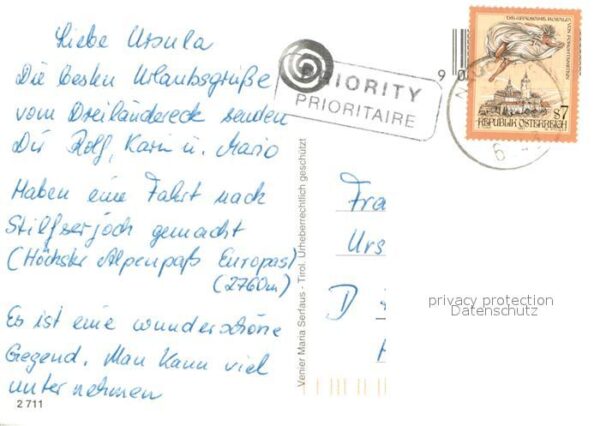 Liebe Ursula
Die besten Urlaubsgrüße
vom Dreiländereck senden
Dir Rolf, Karin u. Mario
Haben eine Fahrt nach
Stilfserjoch gemacht
(Höchster Alpenpaß Europas)
(2760m)
Es ist eine wunderschöne
Gegend. Man kann viel
unternehmen
2 711
PRIORITY
PRIORITAIRE
Venier Maria Serfaus - Tirol. Urheberrechtlich geschützt
9 0
S7
REPUBLIK ÖSTERREICH
6
Fra
Urs
D
privacy protection
Datenschutz